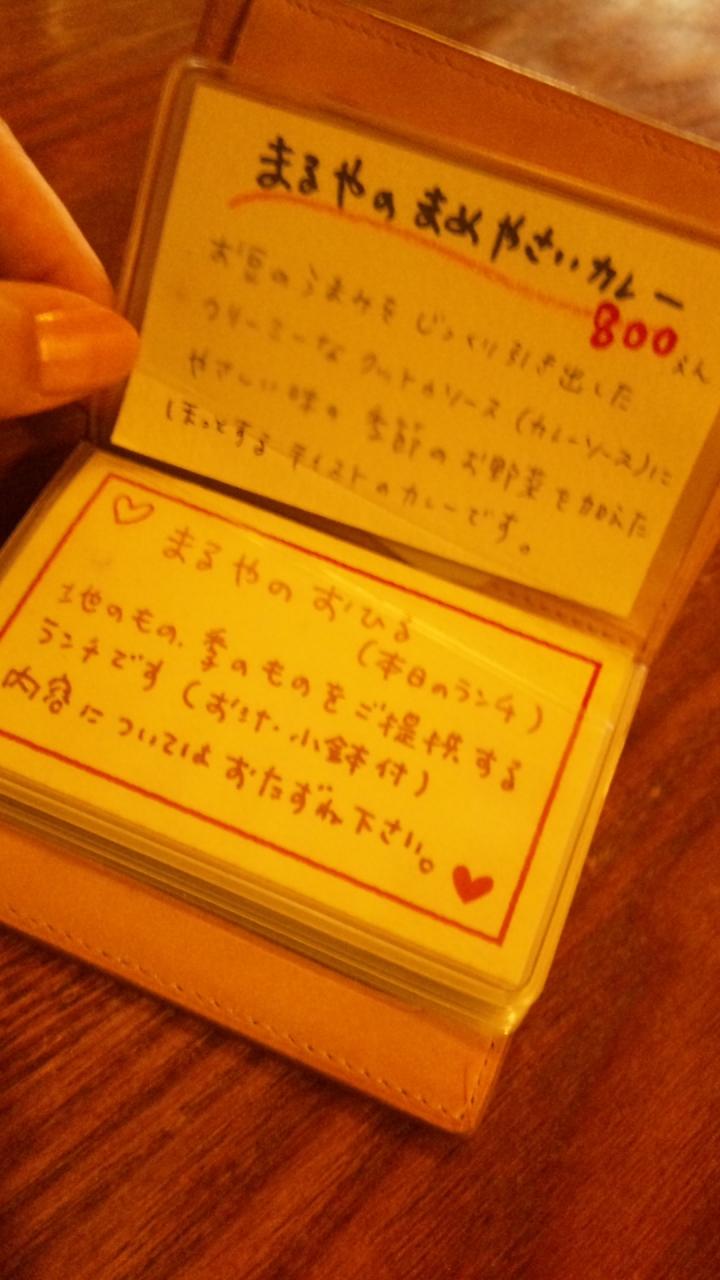 まるやの まめやさいカレー
800えん
お豆のうまみを じっくり引き出した
クリーミーな ソース (カレーソース)に
やさしい味の 季節のお野菜を加えた
ほっとする テイストのカレーです。
まるやの おひる
(本日のランチ)
地のもの、季のものをご提供する
ランチです (おつけ・小鉢付)
内容については おたずね下さい。